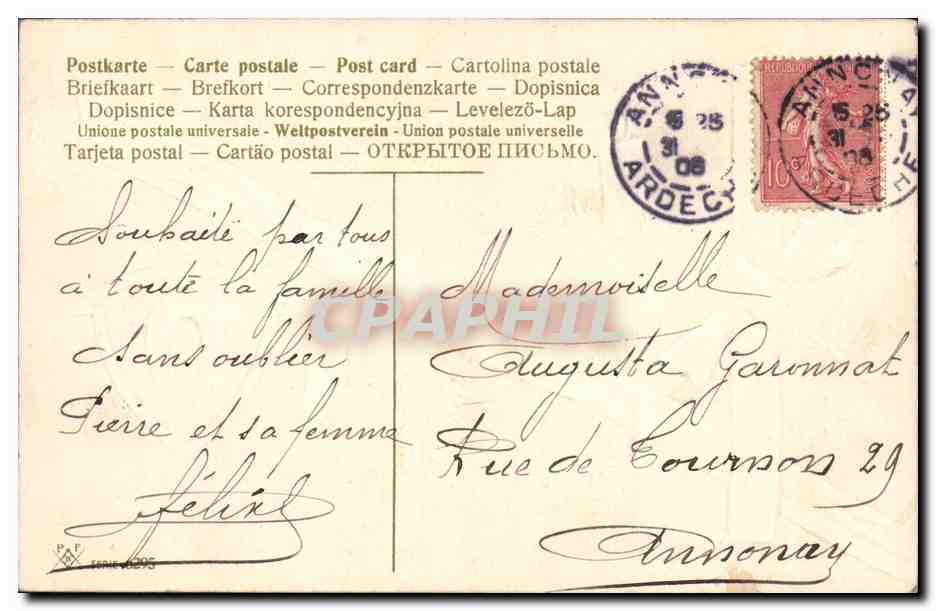 Postkarte — Carte postale — Post card — Cartolina postale
Briefkaart — Brefkort — Correspondenzkarte — Dopisnica
Dopisnice — Karta korespondencyjna — Levelező-Lap
Unione postale universale - Weltpostverein - Union postale universelle
Tarjeta postal — Cartão postal — ОТКРЫТОЕ ПИСЬМО.
ARDECHE
31
08
10
Souhaite par tous
à toute la famille
sans oublier
Pierre et sa femme
Félix
Mademoiselle
Augusta Garonnat
Rue de Tournons 29
Annonay
CPAPHIL
SERIE